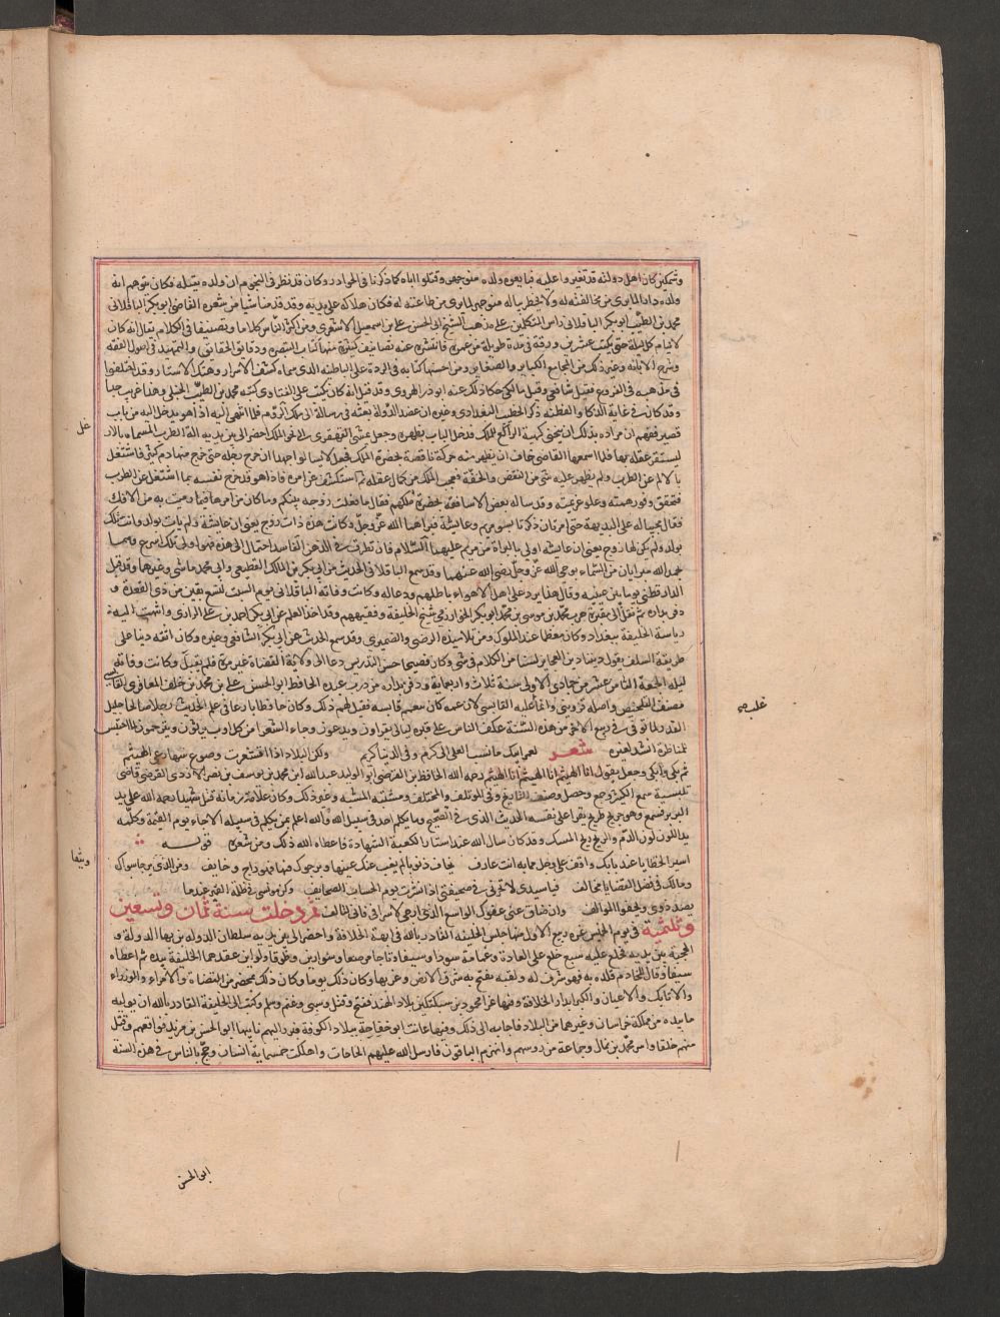 وشمكير كان اهل دولته قد تغيروا عليه فبايعوه ولده منوجهر وقتلوا اباه كما ذكرنا في الحوادث وكان قد نظر في النجوم ان ولده يقتله فكان يتوهم انه
ولده دارا لما يرى من مخالفته له ولا يخطر بباله منوجهر لما يرى من طاعته له فكان هلاكه على يديه وقد قدمنا شيا من شعره القاضي ابو بكر الباقلاني
محمد بن الطيب ابو بكر الباقلاني راس المتكلمين على مذهب الشيخ ابي الحسن علي بن اسمعيل الاشعري ومن اكثر الناس كلاما وتصنيفا في الكلام يقال انه كان
لا ينام كل ليلة حتى يكتب عشرين ورقة في مدة طويلة من عمره فانتشرت عنه تصانيف كثيرة منها كتاب التبصرة ودقائق الحقائق والتمهيد في اصول الفقه
وشرح الابانه وغير ذلك من المجاميع الكبار والصغار ومن احسنها كتابه في الرد على الباطنيه الذي سماه كشف الاسرار وهتك الاستار وقد اختلفوا
في مذهبه في الفروع فقيل شافعي وقيل مالكي حكا ذلك عنه ابو ذر الهروي وقد قيل انه كان يكتب على الفتاوى كتبه محمد بن الطيب الحنبلي وهذا غريب جدا
وقد كان في غاية الذكاء والفطنه ذكر الخطيب البغدادي وغيره ان عضد الدولة بعثه في رسالة الى ملك الروم فلما انتهى اليه اذا هو يدخل اليه من باب
قصير ففهم ان مراده بذلك ان ينحني كهيئة الراكع للملك فدخل الباب بظهره وجعل يمشي القهقرى الى نحو الملك احضر الى بين يديه الة الطرب المسماه بالار
ليستفز عقله بها فلما سمعها القاضي خاف ان يظهر منه حركة ناقصة بحضرة الملك فجعل لا يالوا جهدا ان جرح رجله حتى خرج منها دم كثير فاشتغل
بالالم عن الطرب ولم يظهر عليه شي من النقص والخفة فعجب الملك من كمال عقله ثم استكشف عن امره فاذا هو قد جرح نفسه بما اشتغل عن الطرب
فتحقق وفور همته وعلو عزيمته وقد ساله بعض الاساقفة بحضرة ملكهم فقال ما فعلت زوجه نبيكم وما كان من امرها فيما رميت به من الافك
فقال مجيبا له على البديهة حتى امرتان ذكرتا بسوء مريم وعايشة فبراهما الله عز وجل وكانت هذه ذات زوج يعني ان عايشة ولم يات بولد وانت تلك
بولد ولم يكن لها زوج يعني ان عايشه اولى بالبراة من مريم عليهما السلام فان تطرق في الذهن الفاسد احتمال الى هذه فهو الى تلك اسرع وهما
بحمد الله مبرايان من السماء بوحي الله عز وجل رضي الله عنهما وقد سمع الباقلاني الحديث من ابي بكر بن مالك القطيعي وابي محمد ماشي وغيرهما وقد قبل
الدارقطني يوما بين عينيه وقال هذا يرد على اهل الاهواء باطلهم ودعا له وكانت وفاته الباقلاني يوم السبت لسبع بقين من ذي القعدة و
دفن بداره ثم نقل الى مقبرة حرب محمد بن موسى بن محمد ابو بكر الخوارزمي شيخ الحنيفة وفقيههم وقد اخذ العلم عن ابي بكر احمد بن علي الرازي وانتهت اليه
رياسة الحنيفة ببغداد وكان معظما عند الملوك ومن تلاميذه الرضي والصيمري وقد سمع الحديث من ابي بكر الشافعي وغيره وكان ثقه دينا على
طريقة السلف يقول ديننا دين العجايز لسنا من الكلام في شي وكان فصيحا حسن التدريس دعا الى ولاية القضاة غير مرة فلم يقبل وكانت وفاته
ليلة الجمعة الثامن عشر من جمادى الاولى سنة ثلاث واربعماية ودفن بداره من درب عبده الحافظ ابو الحسن علي بن محمد بن خلف المعافري القابسي
مصنف التلخيص واصله قزويني وانما غلب عليه القابسي لان عمه كان معتم قابسيه فقيل لهم ذلك وكان حافظا بارعا في علم الحديث رجلا صالحا جليل
القدر ولما توفي في ربيع الاخر من هذه السنة عكف الناس على قبره ليالي يقراون ويدعون وجاء الشعرا من كل اوب يرثون ويترحمون لما اجلس
لمناظرة انشد لغيره شعر لعمر ابيك ما نسب المعلى الى كرم وفي الدنيا كريم ولكن البلاد اذا اقشعرت وصوح نبتها رعي الهشيم
ثم بكى وابكى وجعل يقول انا الهشيم انا الهشيم انا الهشيم رحمه الله الحافظ بن الفرضي ابو الوليد عبد الله ابن محمد بن يوسف بن نصر الازدي الفرضي قاضي
بلنسية سمع الكثير وجمع وحصل وصنف التاريخ وفي الموتلف والمختلف ومشتبه النسبه وغير ذلك وكان علامة زمانه قتل شهيدا رحمه الله على يد
البربر فسمع وهو جريح طريح يقرا على نفسه الحديث الذي في الصحيح وما يكلم احد في سبيل الله والله اعلم بمن يكلم في سبيله الا جاء يوم القيمة وكلمه
يدما اللون لون الدم والريح ريح المسك وقد كان سال الله عند استار الكعبة الشهادة فاعطاه الله ذلك ومن شعره قوله
اسير الخطايا عند بابك واقف على وجل مما به انت عارف يخاف ذنوبا لم يغب عنك عينها ويرجوك فيها فهو راج وخايف ومن الذي يرجا سواك
ومالك في فضل القضايا مخالف فيا سيدي لا تخزني في صحيفتي اذا نشرت يوم الحساب الصحايف وكن مونسي في ظلمة القبر عندما
يصد ذوي ويجفوا الموالف وان ضاق عني عفوك الواسع الذي ارجى لاسرافي فاني لتالف ثم دخلت سنة ثمان وتسعين
وثلثمية في يوم الخميس غره ربيع الاول منها جلس الخليفه القادر بالله في ابهة الخلافة واحضر الى بين يديه سلطان الدوله بن بها الدولة و
الحجبة بين يديه فخلع عليه سبع خلع على العادة وعمامة سودا وسيفا وتاجا مرصعا وسوارين وطوقا ولواين عقدهما الخليفة بيده ثم اعطاه
سيفا وقال للخادم قلده به فهو شرف له ولعقبه يفتح به شرق الارض وغربها وكان ذلك يوما وكان ذلك بمحضر من القضاة والامراء والوزراء
والاتابك والاعيان والكبرا بدار الخلافة وفيها غزا محمود بن سبكتكين بلاد الهند ففتح وقتل وسبى وغنم وسلم وكتب الى الخليفة القادر بالله ان يوليه
ما بيده من مملكة خراسان وغيرها من البلاد فاجابه الى ذلك وفيها عاثت ابو خفاجة ببلاد الكوفة فبرز اليهم نايبها ابو الحسن بن مزيد فواقعهم وقتل
منهم خلقا واسر محمد بن ثمال وجماعة من روسهم وانهزم الباقون فارسل الله عليهم ريحا حارات واهلكت خمسماية انسان وحج بالناس في هذه السنة
ابو الحسن